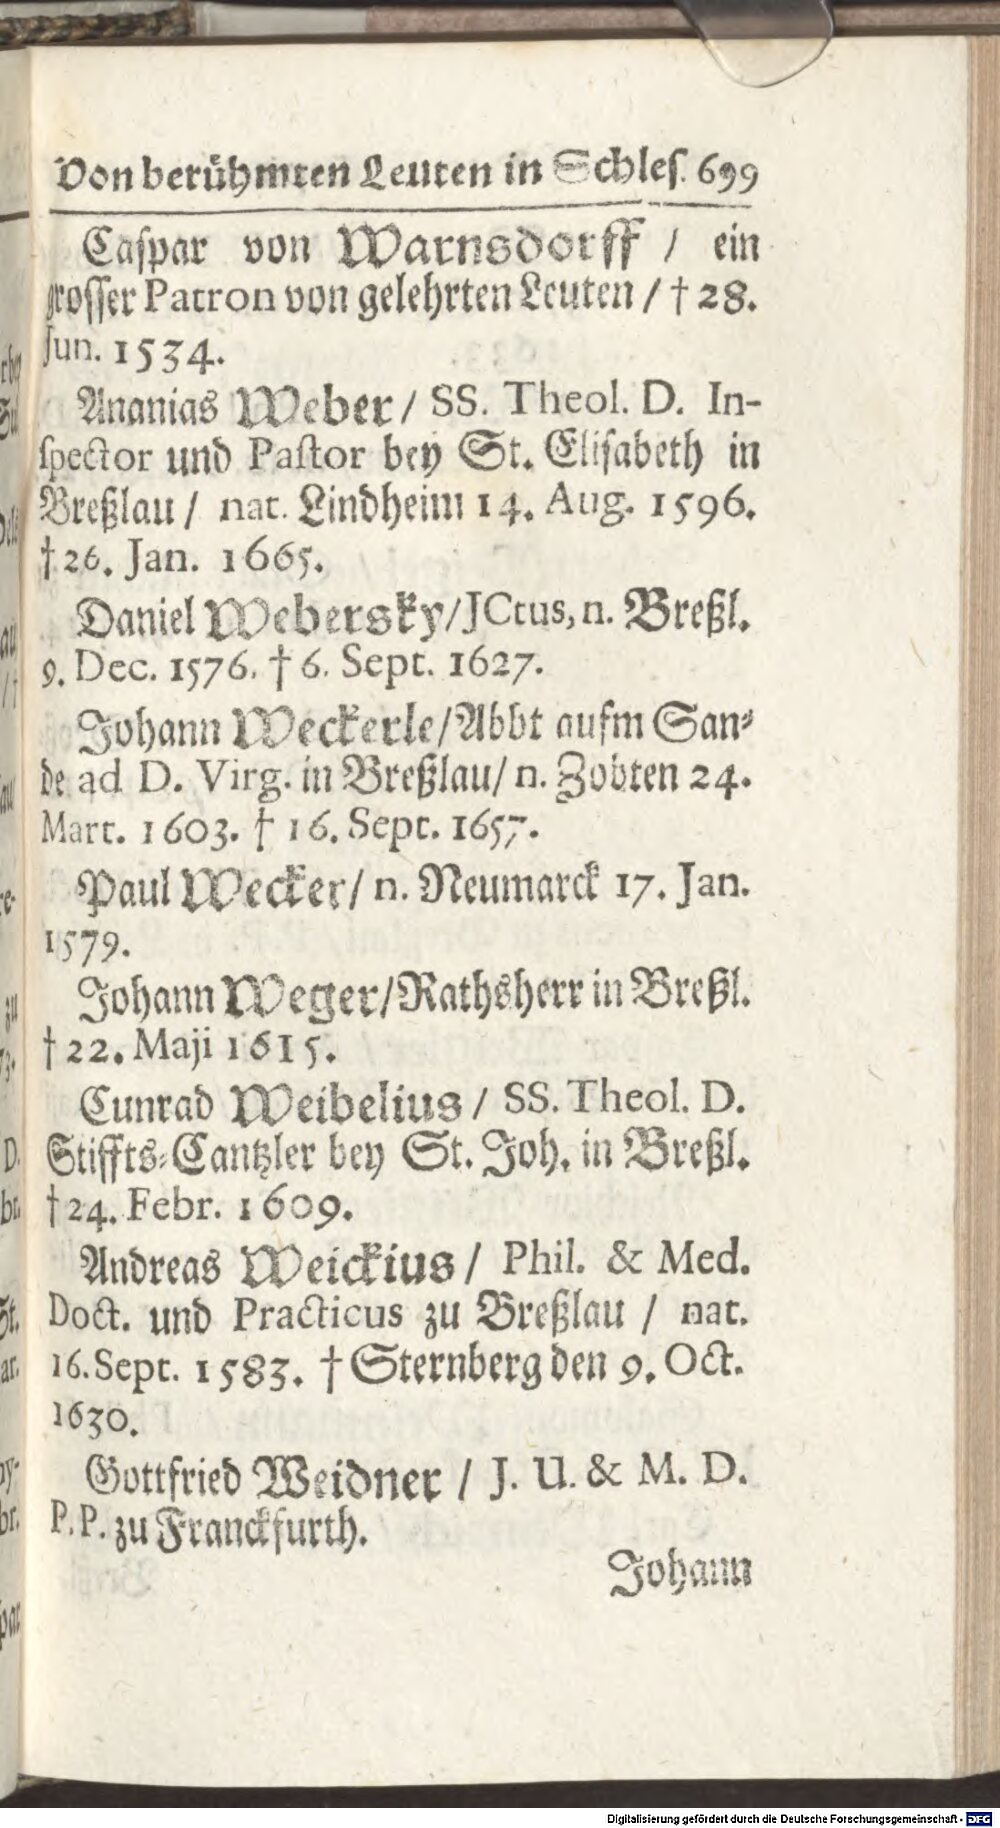 Von berühmten Leuten in Schles. 699
Caspar von Warnsdorff / ein
grosser Patron von gelehrten Leuten / † 28.
Jun. 1534.
Ananias Weber / SS. Theol. D. In-
spector und Pastor bey St. Elisabeth in
Breßlau / nat. Lindheim 14. Aug. 1596.
† 26. Jan. 1665.
Daniel Webersky / JCtus, n. Breßl.
9. Dec. 1576. † 6. Sept. 1627.
Johann Weckerle / Abbt aufm San-
de ad D. Virg. in Breßlau / n. Zobten 24.
Mart. 1603. † 16. Sept. 1657.
Paul Wecker / n. Neumarck 17. Jan.
1579.
Johann Weger / Rathsherr in Breßl.
† 22. Maji 1615.
Cunrad Weibelius / SS. Theol. D.
Stiffts-Cantzler bey St. Joh. in Breßl.
† 24. Febr. 1609.
Andreas Weickius / Phil. & Med.
Doct. und Practicus zu Breßlau / nat.
16. Sept. 1583. † Sternberg den 9. Oct.
1630.
Gottfried Weidner / J. U. & M. D.
P. P. zu Franckfurth.
Johann
Digitalisierung gefördert durch die Deutsche Forschungsgemeinschaft - DFG